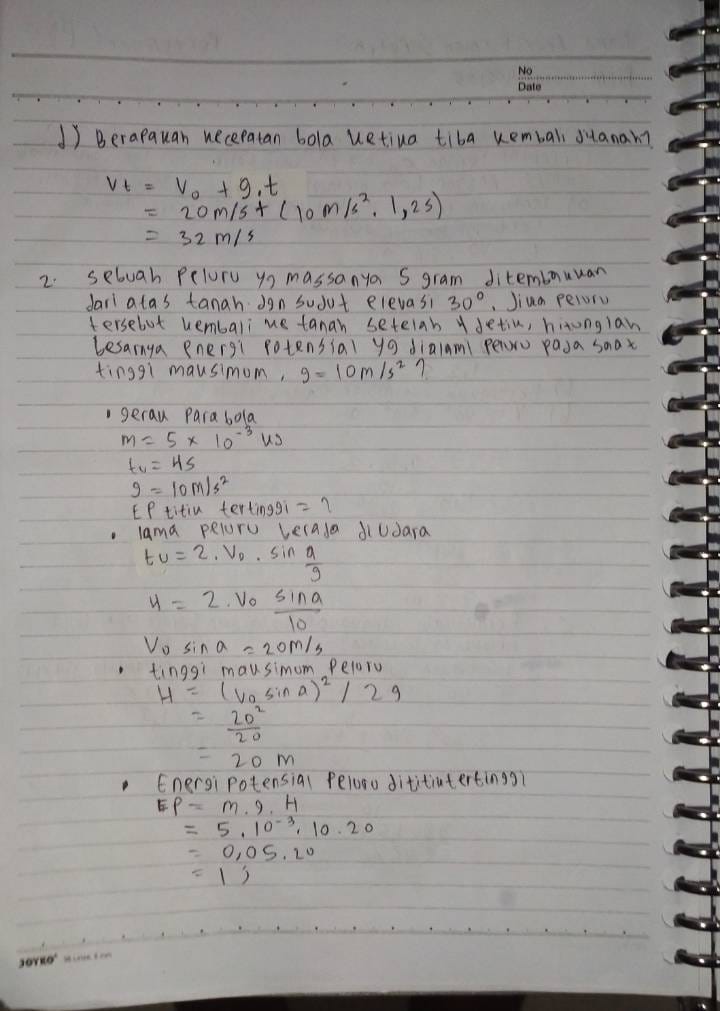 No
Date
d) Berapakah kecepatan bola ketika tiba kembali ditanah?
Vt = V₀ + g.t
= 20 m/s + (10 m/s². 1,2s)
= 32 m/s
2. sebuah peluru yg massanya 5 gram ditembakkan
dari atas tanah dgn sudut elevasi 30°. Jika peluru
tersebut kembali ke tanah setelah 4 detik, hitunglah
besarnya energi potensial yg dialami peluru pada saat
tinggi maksimum, g = 10 m/s² ?
• gerak parabola
m = 5 × 10⁻³ kg
tu = 4s
g = 10 m/s²
EP titik tertinggi = ?
• lama peluru berada diudara
tu = 2. V₀ . sin a/g
4 = 2. V₀ sin a/10
V₀ sin a = 20 m/s
• tinggi maksimum peluru
H = (V₀ sin a)² / 2g
= 20²/20
= 20 m
• Energi potensial peluru dititik tertinggi
EP = m.g.H
= 5.10⁻³.10.20
= 0,05.20
= 1 j
JOYKO